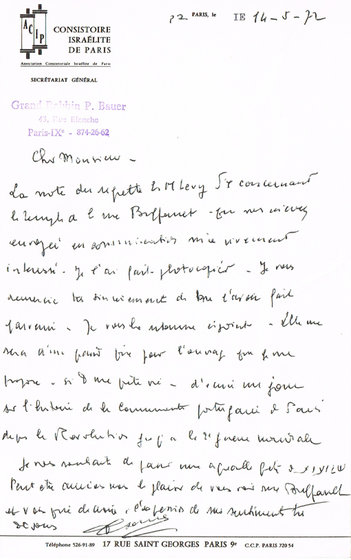 ACIP
CONSISTOIRE
ISRAÉLITE
DE PARIS
Association Consistoriale Israélite de Paris
SECRÉTARIAT GÉNÉRAL
PARIS, le 14-5-72
Grand Rabbin P. Bauer
43, Rue Blanche
Paris-IXe - 874-26-62
Cher Monsieur -
La note du regretté M Levy concernant
le temple de la rue Buffault - que vous m'avez
envoyée en communication m'a vivement
intéressé - Je l'ai fait photocopier - Je vous
remercie très sincèrement de me l'avoir fait
parvenir - Je vous la retourne ci-joint - Elle me
sera d'un grand prix pour l'ouvrage que je me
propose - si D me prête vie - d'écrire un jour
sur l'histoire de la communauté portugaise de Paris
depuis la Révolution jusqu'à la 2e guerre mondiale
Je vous souhaite de passer une agréable fête de
Peut être aurons nous le plaisir de vous voir rue Buffault
et vous prie de croire, à l'expression de mes sentiments
Téléphone 526-91-89 17 RUE SAINT GEORGES PARIS 9e C.C.P. PARIS 720 54